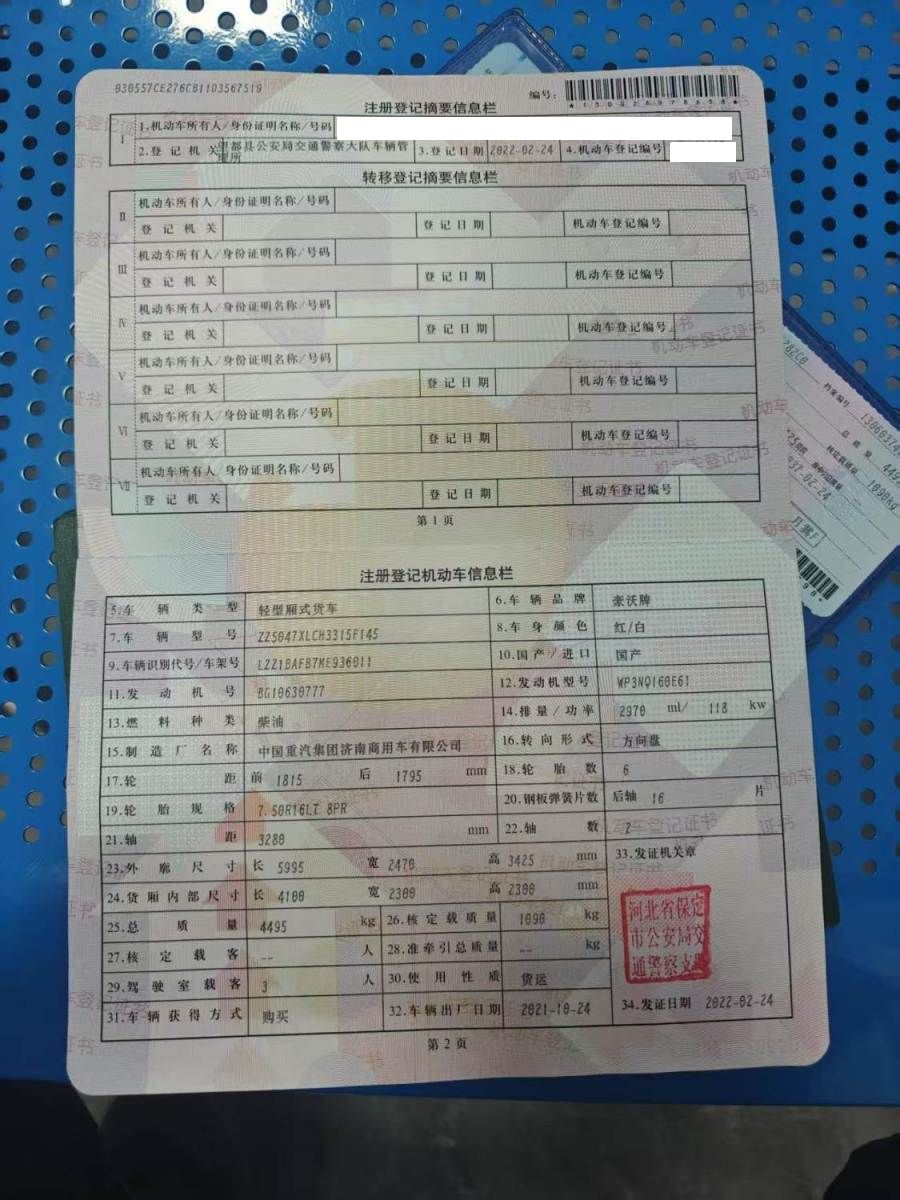 B30557CE276CB1103567519
编号:
注册登记摘要信息栏
I 1.机动车所有人/身份证明名称/号码
2.登记机关 望都县公安局交通警察大队车辆管理所 3.登记日期 2022-02-24 4.机动车登记编号
转移登记摘要信息栏
II 机动车所有人/身份证明名称/号码
登记机关 登记日期 机动车登记编号
III 机动车所有人/身份证明名称/号码
登记机关 登记日期 机动车登记编号
IV 机动车所有人/身份证明名称/号码
登记机关 登记日期 机动车登记编号
V 机动车所有人/身份证明名称/号码
登记机关 登记日期 机动车登记编号
VI 机动车所有人/身份证明名称/号码
登记机关 登记日期 机动车登记编号
VII 机动车所有人/身份证明名称/号码
登记机关 登记日期 机动车登记编号
第1页
注册登记机动车信息栏
5.车辆类型 轻型厢式货车 6.车辆品牌 豪沃牌
7.车辆型号 ZZ5047XLCH3315F145 8.车身颜色 红/白
9.车辆识别代号/车架号 LZZ1BAFB7ME936011 10.国产/进口 国产
11.发动机号 BG10630777 12.发动机型号 WP3NQ160E61
13.燃料种类 柴油 14.排量/功率 2970 ml/ 118 kw
15.制造厂名称 中国重汽集团济南商用车有限公司 16.转向形式 方向盘
17.轮距 前 1815 后 1795 mm 18.轮胎数 6
19.轮胎规格 7.50R16LT 8PR 20.钢板弹簧片数 后轴 16 片
21.轴距 3280 mm 22.轴数 2
23.外廓尺寸 长 5995 宽 2470 高 3425 mm 33.发证机关章
24.货厢内部尺寸 长 4100 宽 2300 高 2300 mm
25.总质量 4495 kg 26.核定载质量 1090 kg
27.核定载客 -- 人 28.准牵引总质量 -- kg
29.驾驶室载客 3 人 30.使用性质 货运
31.车辆获得方式 购买 32.车辆出厂日期 2021-10-24 34.发证日期 2022-02-24
河北省保定
市公安局交
通警察支队
第2页
档案编号
1090kg